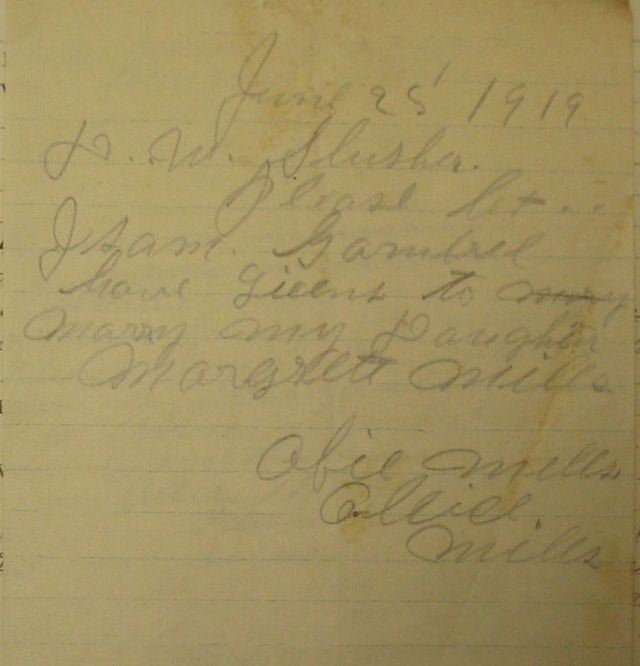 June 25 1919
D. W. Slusher.
Please let
Isam. Gambrel
have Licens to mary
marry my Daughter
Margrett Mills
Obie Mills
Ollie
Mills